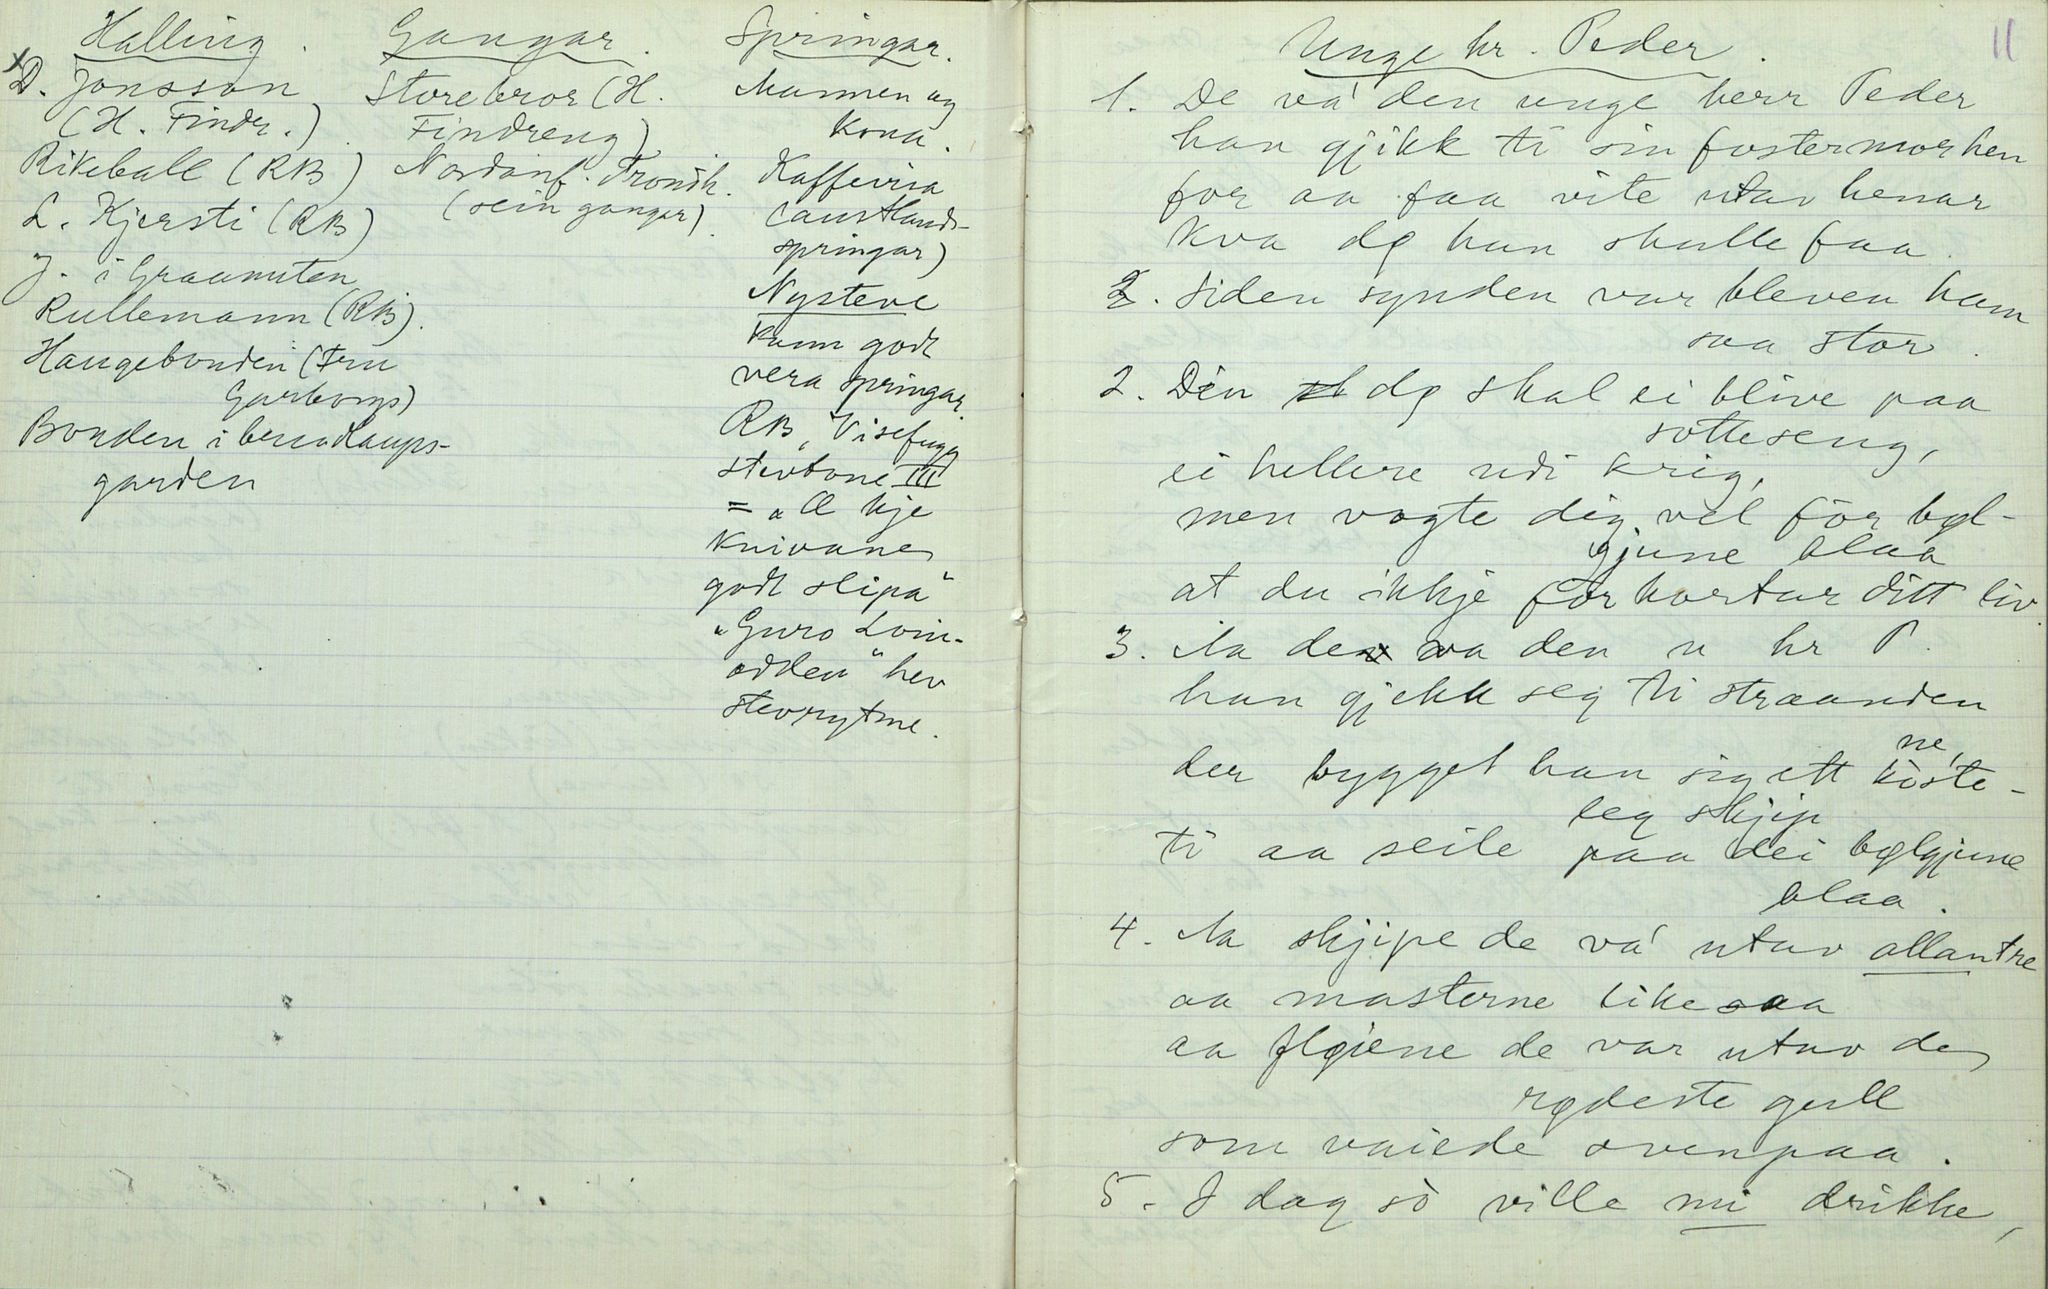 Halling.
x D. Jonsson
(H. Findr.)
Rikeball (RB)
L. Kjersti (RB)
J. i Graanuten
Rullemann (RB).
Haugebonden (Fru
Garborgs)
Bonden i brudlaups-
garden
Gangar.
Storebror (H.
Findreng)
Nordanf. Trondh.
(sein gangar).
Springar.
Mannen og
Kona.
Kaffevisa
(austlands-
springar)
Nysteve
kann godt
vera springar.
RB, Visefuga
stevtone III
= "Å hje
knivane
godt slipa"
"Guro Lom-
odden" hev
stevrytme.
11
Unge hr. Peder.
1. De va' den unge herr Peder
han gjikk ti sin fostermor hen
for aa faa vite utav henar
kva dø han skulle faa.
2. Siden synden var bleven ham
saa stor.
2. Din dø skal ei blive paa
sotteseng,
ei hellere udi krig,
men vogte dig vel för bøl-
gjune blaa
at du ikkje förkortar ditt liv.
3. Aa de va den u hr P.
han gjekk seg ti straanden
der bygget han sig ett kòste-
ne,
leg skjip
ti aa seile paa dei bølgjune
blaa.
4. Aa skjipe de va' utav allantre
aa masterne like saa
aa fløiene de var utav de
rødeste gull
som vaiede ovenpaa.
5. I dag sò ville mi drikke,